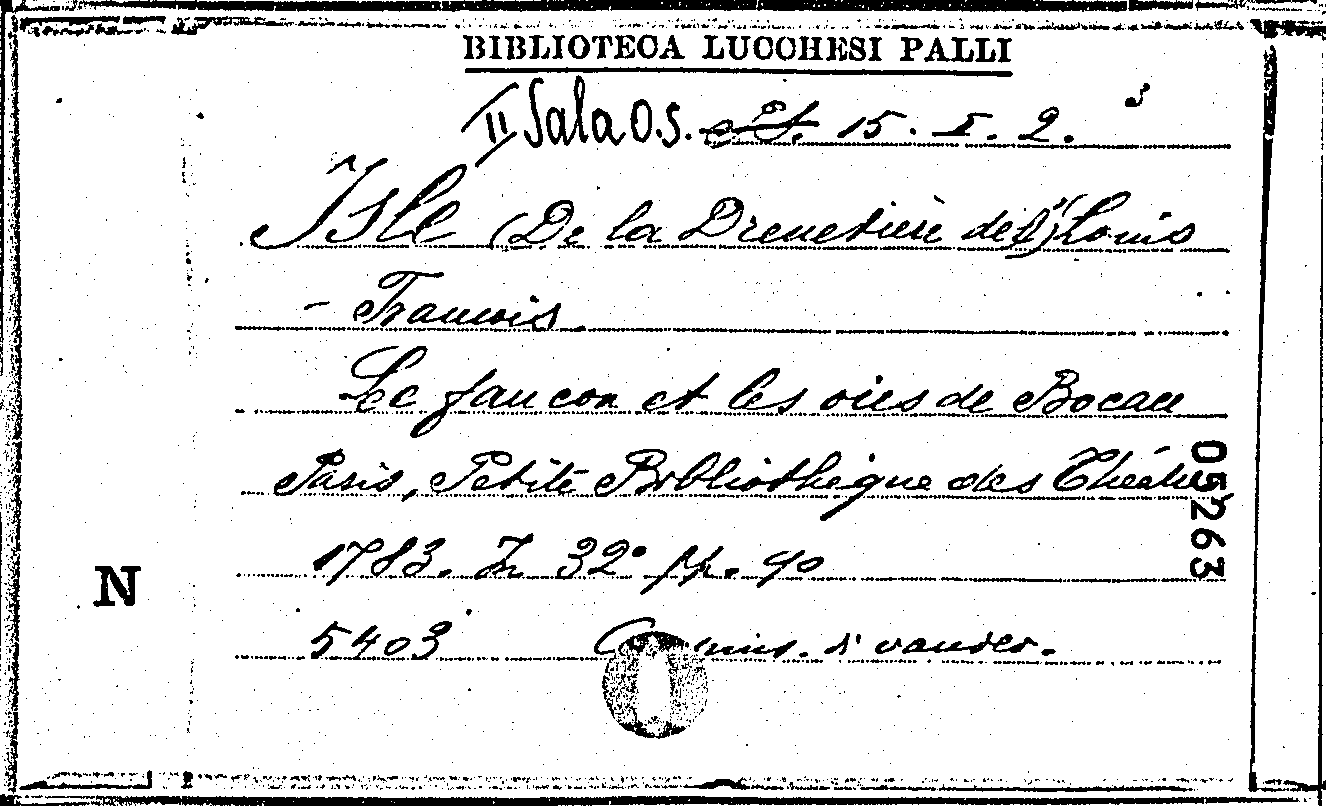 BIBLIOTECA LUCCHESI PALLI
II Sala O.S. 15. I. 2. 3
Isle (De la Drevetière de l') Louis
- Francois
Le faucon et les oies de Bocace
Paris, Petite Bibliothèque des Théatres
05263
1783. In 32° pp. 90
N
5403